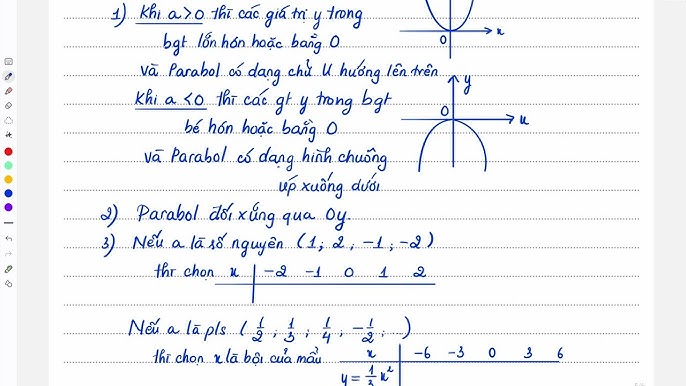 1) Khi a>0 thì các giá trị y trong
bgt lớn hơn hoặc bằng 0
và Parabol có dạng chữ U hướng lên trên
0 x
Khi a <0 thì các gt y trong bgt
bé hơn hoặc bằng 0
và Parabol có dạng hình chuông
úp xuống dưới
y
0 x
2) Parabol đối xứng qua Oy.
3) Nếu a là số nguyên (1; 2; -1; -2)
thì chọn x | -2 -1 0 1 2
Nếu a là pls (1/2; 1/3; 1/4; -1/2; ...)
thì chọn x là bội của mẫu
x | -6 -3 0 3 6
y = 1/3 x²